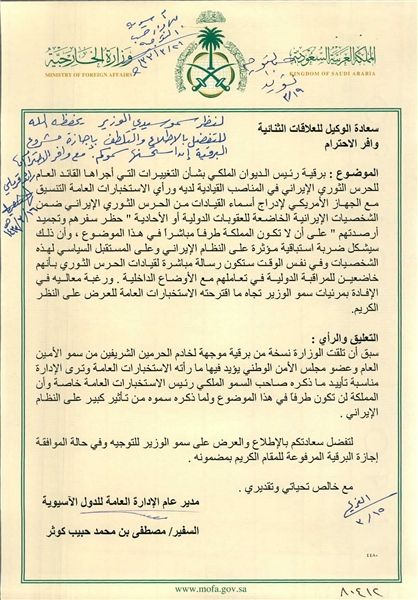 المملكة العربية السعودية
وزارة الخارجية
KINGDOM OF SAUDI ARABIA
MINISTRY OF FOREIGN AFFAIRS
سعادة الوكيل للعلاقات الثنائية
وافر الاحترام
لنظر سمو سيدي الوزير يحفظه الله
للتفضل بالاطلاع والتلطف بإجازة مشروع
البرقية إذا استحسن سموكم
الموضوع : برقية رئيس الديوان الملكي بشأن التغييرات التي أجراها القائد العام
للحرس الثوري الإيراني في المناصب القيادية لديه ورأي الاستخبارات العامة التنسيق
مع الجهاز الأمريكي لإدراج أسماء القيادات من الحرس الثوري الإيراني ضمن
الشخصيات الإيرانية الخاضعة للعقوبات الدولية أو الأحادية " حظر سفرهم وتجميد
أرصدتهم " على أن لا تكون المملكة طرفاً مباشراً في هذا الموضوع ، وأن ذلك
سيشكل ضربة استباقية مؤثرة على النظام الإيراني وعلى المستقبل السياسي لهذه
الشخصيات وفي نفس الوقت ستكون رسالة مباشرة لقيادات الحرس الثوري بأنهم
خاضعين للمراقبة الدولية في تعاملهم مع الأوضاع الداخلية . ورغبة معاليه في
الإفادة بمرئيات سمو الوزير تجاه ما اقترحته الاستخبارات العامة للعرض على النظر
الكريم.
التعليق والرأي :
سبق أن تلقت الوزارة نسخة من برقية موجهة لخادم الحرمين الشريفين من سمو الأمين
العام وعضو مجلس الأمن الوطني يؤيد فيها ما رأته الاستخبارات العامة وترى الإدارة
مناسبة تأييد ما ذكره صاحب السمو الملكي رئيس الاستخبارات العامة خاصة وأن
المملكة لن تكون طرفاً في هذا الموضوع ولما ذكره سموه من تأثير كبير على النظام
الإيراني .
لتفضل سعادتكم بالإطلاع والعرض على سمو الوزير للتوجيه وفي حالة الموافقة
إجازة البرقية المرفوعة للمقام الكريم بمضمونه .
مع خالص تحياتي وتقديري .
مدير عام الإدارة العامة للدول الآسيوية
السفير/ مصطفى بن محمد حبيب كوثر
٣/١٥
٤٤٨٠
www.mofa.gov.sa
٨٠٤١٢